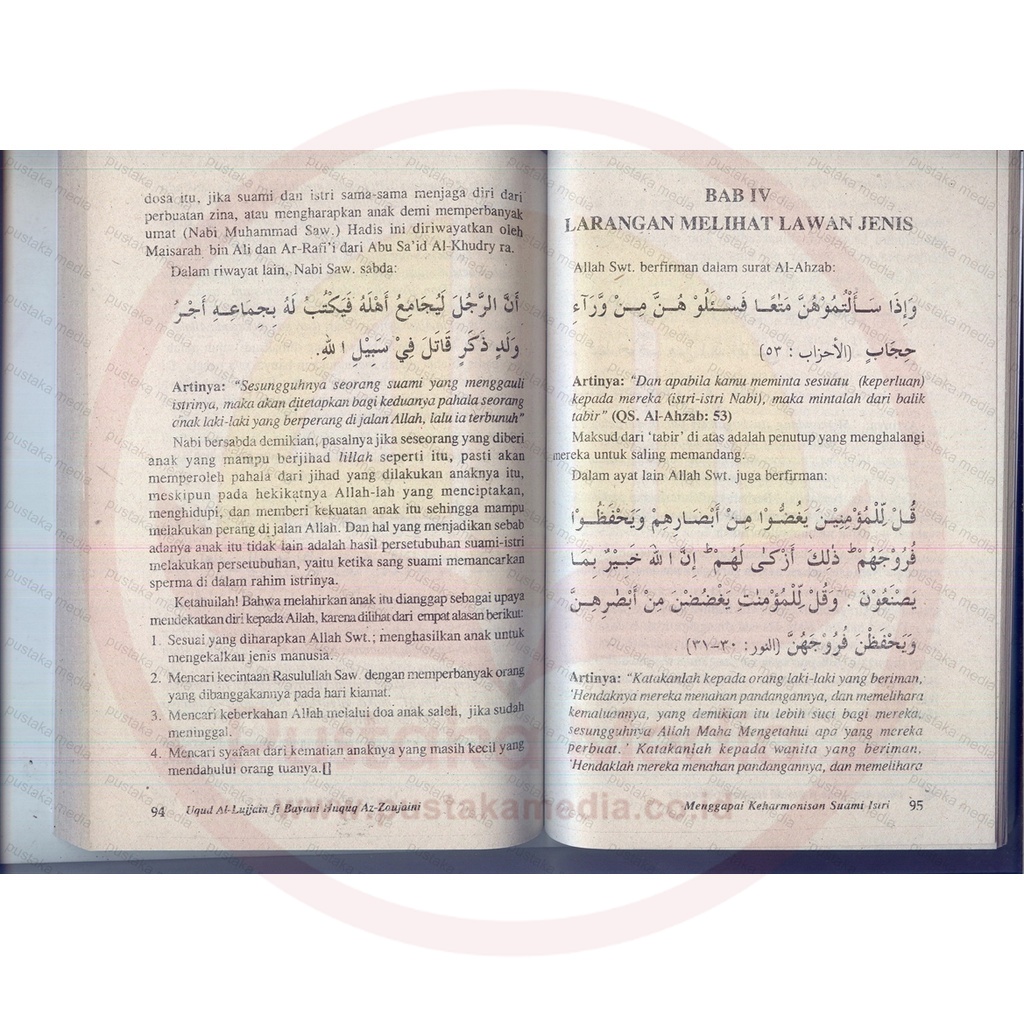 dosa itu, jika suami dan istri sama-sama menjaga diri dari
perbuatan zina, atau mengharapkan anak demi memperbanyak
umat (Nabi Muhammad Saw.) Hadis ini diriwayatkan oleh
Maisarah bin Ali dan Ar-Rafi'i dari Abu Sa'id Al-Khudry ra.
Dalam riwayat lain, Nabi Saw. sabda:
أَنَّ الرَّجُلَ لَيُجَامِعُ أَهْلَهُ فَيَكْتُبُ لَهُ بِجِمَاعِهِ أَجْرُ
وَلَدٍ ذَكَرٍ قَاتَلَ فِيْ سَبِيْلِ اللهِ.
Artinya: "Sesungguhnya seorang suami yang menggauli
istrinya, maka akan ditetapkan bagi keduanya pahala seorang
anak laki-laki yang berperang di jalan Allah, lalu ia terbunuh"
Nabi bersabda demikian, pasalnya jika seseorang yang diberi
anak yang mampu berjihad lillah seperti itu, pasti akan
memperoleh pahala dari jihad yang dilakukan anaknya itu,
meskipun pada hekikatnya Allah-lah yang menciptakan,
menghidupi, dan memberi kekuatan anak itu sehingga mampu
melakukan perang di jalan Allah. Dan hal yang menjadikan sebab
adanya anak itu tidak lain adalah hasil persetubuhan suami-istri
melakukan persetubuhan, yaitu ketika sang suami memancarkan
sperma di dalam rahim istrinya.
Ketahuilah! Bahwa melahirkan anak itu dianggap sebagai upaya
mendekatkan diri kepada Allah, karena dilihat dari empat alasan berikut:
1. Sesuai yang diharapkan Allah Swt.; menghasilkan anak untuk
mengekalkan jenis manusia.
2. Mencari kecintaan Rasulullah Saw. dengan memperbanyak orang
yang dibanggakannya pada hari kiamat.
3. Mencari keberkahan Allah melalui doa anak saleh, jika sudah
meninggal.
4. Mencari syafaat dari kematian anaknya yang masih kecil yang
mendahului orang tuanya.[]
94 Uqud Al-Lujjain fi Bayani Huquq Az-Zoujaini
BAB IV
LARANGAN MELIHAT LAWAN JENIS
Allah Swt. berfirman dalam surat Al-Ahzab:
وَإِذَا سَأَلْتُمُوْهُنَّ مَتٰعًا فَسْئَلُوْ هُنَّ مِنْ وَّرَآءِ
حِجَابٍ (الأحزاب : ٥٣)
Artinya: "Dan apabila kamu meminta sesuatu (keperluan)
kepada mereka (istri-istri Nabi), maka mintalah dari balik
tabir" (QS. Al-Ahzab: 53)
Maksud dari 'tabir' di atas adalah penutup yang menghalangi
mereka untuk saling memandang.
Dalam ayat lain Allah Swt. juga berfirman:
قُلْ لِّلْمُؤْمِنِيْنَ يَغُضُّوْا مِنْ أَبْصَارِهِمْ وَيَحْفَظُوْا
فُرُوْجَهُمْ ۗ ذٰلِكَ أَزْكٰى لَهُمْ ۗ إِنَّ اللهَ خَبِيْرٌ بِمَا
يَصْنَعُوْنَ . وَقُلْ لِّلْمُؤْمِنٰتِ يَغْضُضْنَ مِنْ أَبْصٰرِهِنَّ
وَيَحْفَظْنَ فُرُوْجَهُنَّ (النور: ٣٠-٣١)
Artinya: "Katakanlah kepada orang laki-laki yang beriman,
'Hendaknya mereka menahan pandangannya, dan memelihara
kemaluannya, yang demikian itu lebih suci bagi mereka,
sesungguhnya Allah Maha Mengetahui apa yang mereka
perbuat.' Katakanlah kepada wanita yang beriman,
'Hendaklah mereka menahan pandangannya, dan memelihara
Menggapai Keharmonisan Suami Istri 95
www.pustakamedia.co.id
pustaka media